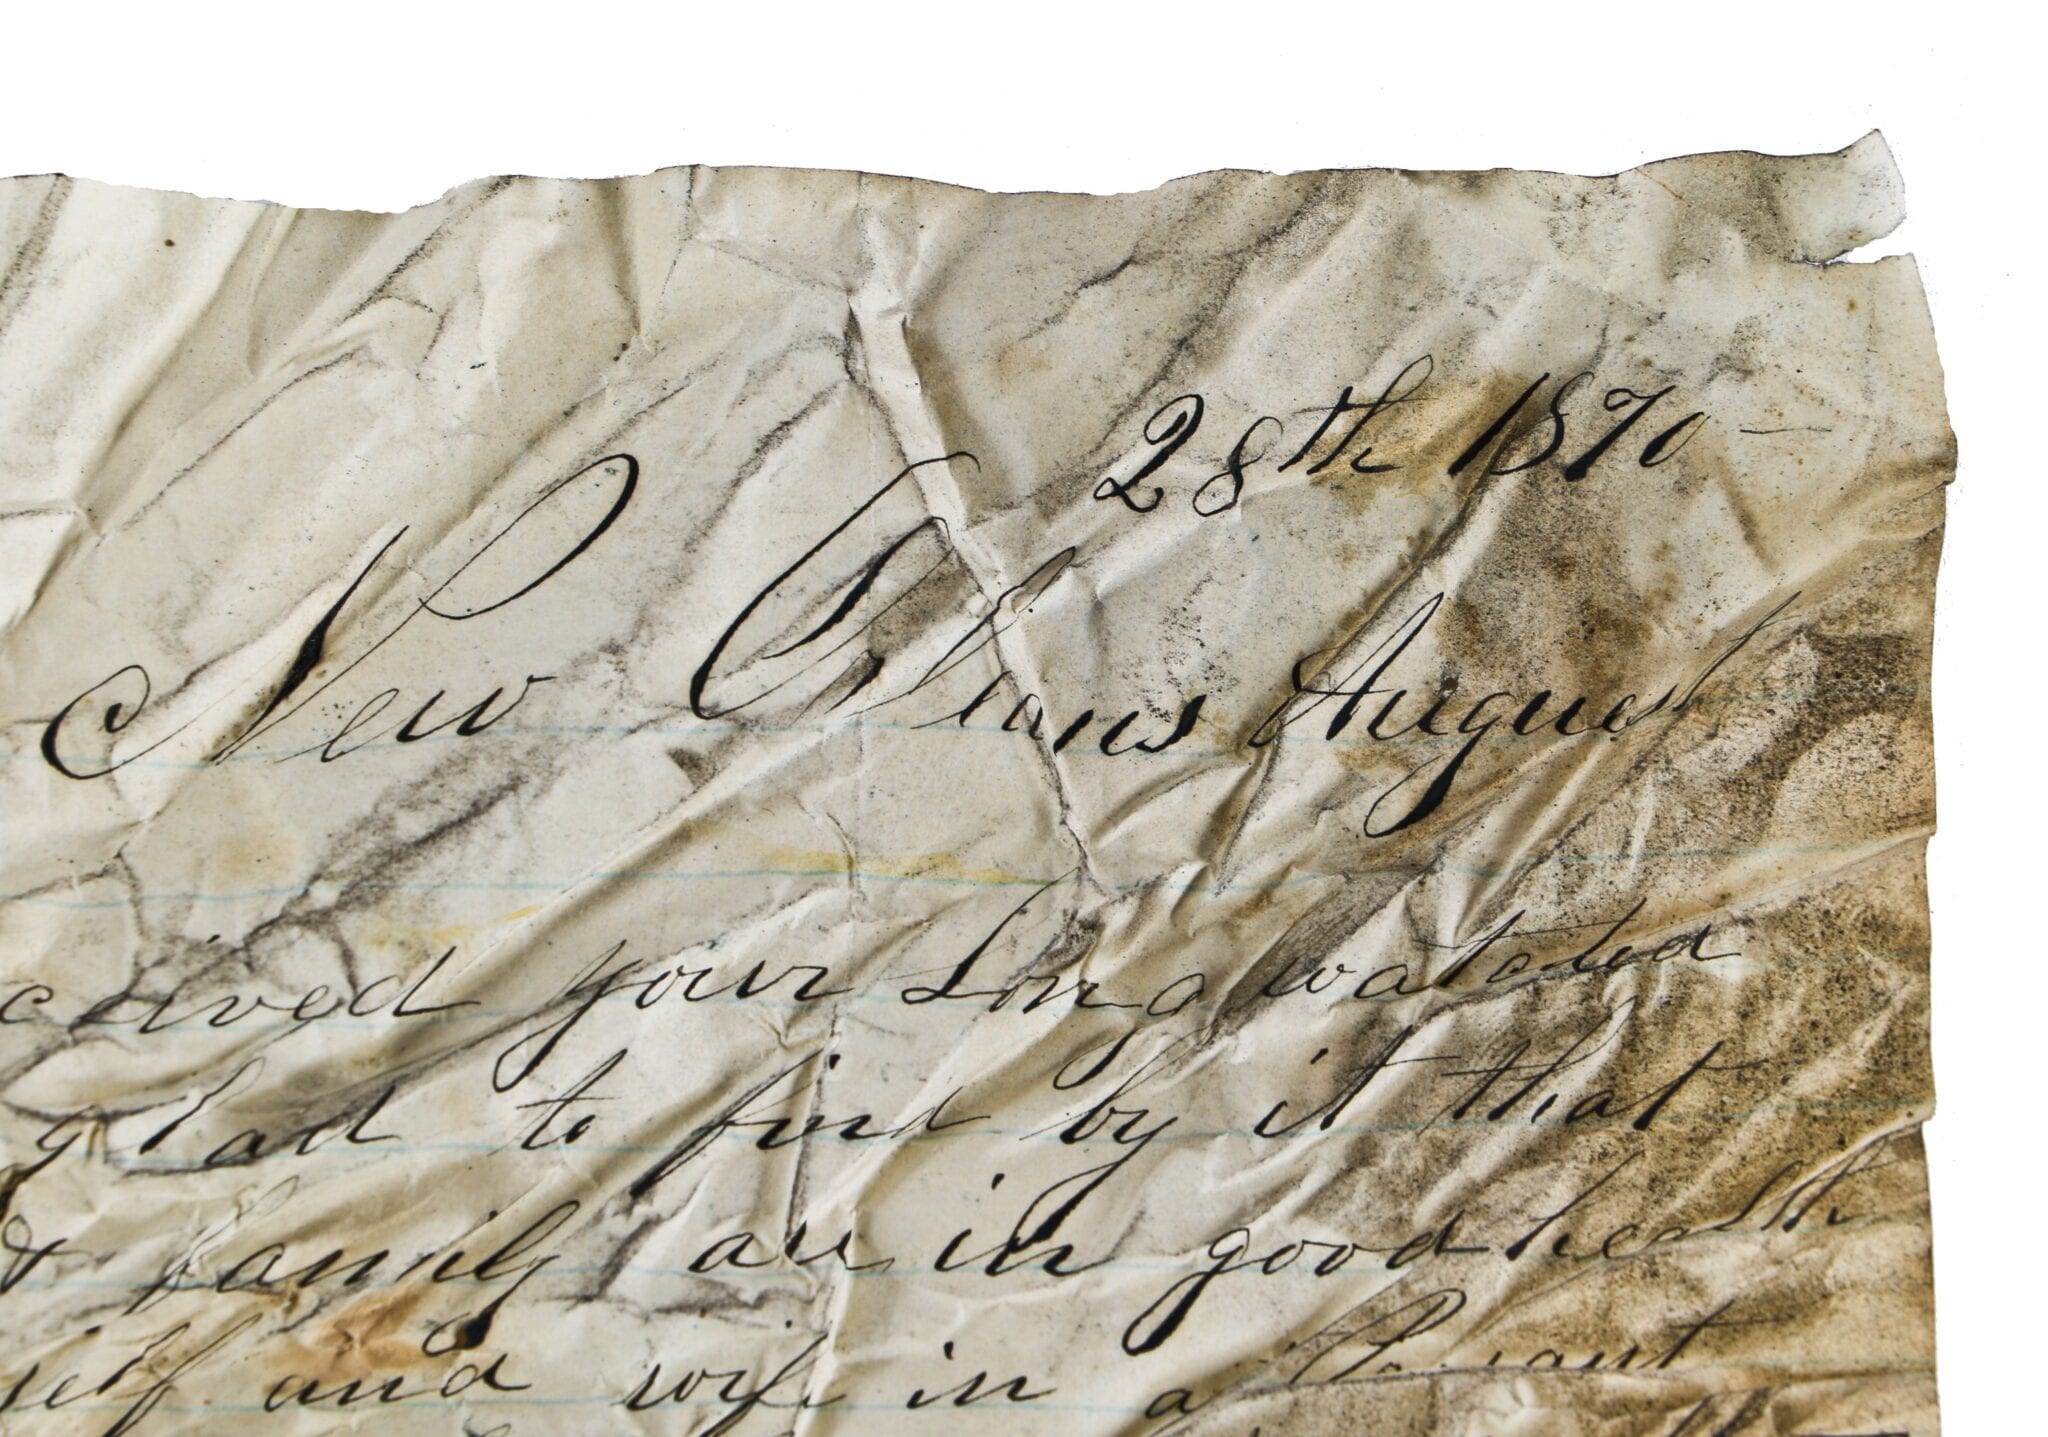 28th 1870 —
New Orleans August
ceived your Long watched
glad to find by it that
& family are in good health
self and wife in a